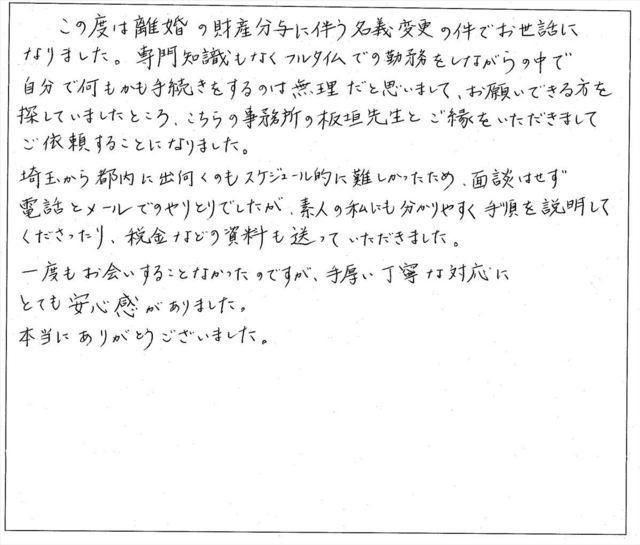 この度は離婚の財産分与に伴う名義変更の件でお世話に
なりました。専門知識もなくフルタイムでの勤務をしながらの中で
自分で何もかも手続きをするのは無理だと思いまして、お願いできる方を
探していましたところ、こちらの事務所の板垣先生とご縁をいただきまして
ご依頼することになりました。
埼玉から都内に出向くのもスケジュール的に難しかったため、面談はせず
電話とメールでのやりとりでしたが、素人の私にも分かりやすく手順を説明して
くださったり、税金などの資料も送っていただきました。
一度もお会いすることなかったのですが、手厚い丁寧な対応に
とても安心感がありました。
本当にありがとうございました。